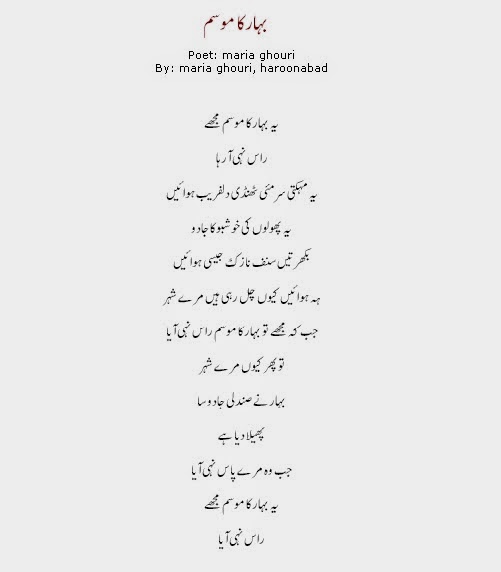 بہار کا موسم
Poet: maria ghouri
By: maria ghouri, haroonabad
یہ بہار کا موسم مجھے
راس نہی آ رہا
یہ مہکتی سرمئی ٹھنڈی دلفریب ہوائیں
یہ پھولوں کی خوشبو کا جادو
بکھرتیں سنف نازکٹ جیسی ہوائیں
ہہ ہوائیں کیوں چل رہی ہیں مرے شہر
جب کہ مجھے تو بہار کا موسم راس نہی آیا
تو پھر کیوں مرے شہر
بہار نے صندلی جادو سا
پھیلا دیا ہے
جب وہ مرے پاس نہی آیا
یہ بہار کا موسم مجھے
راس نہی آیا